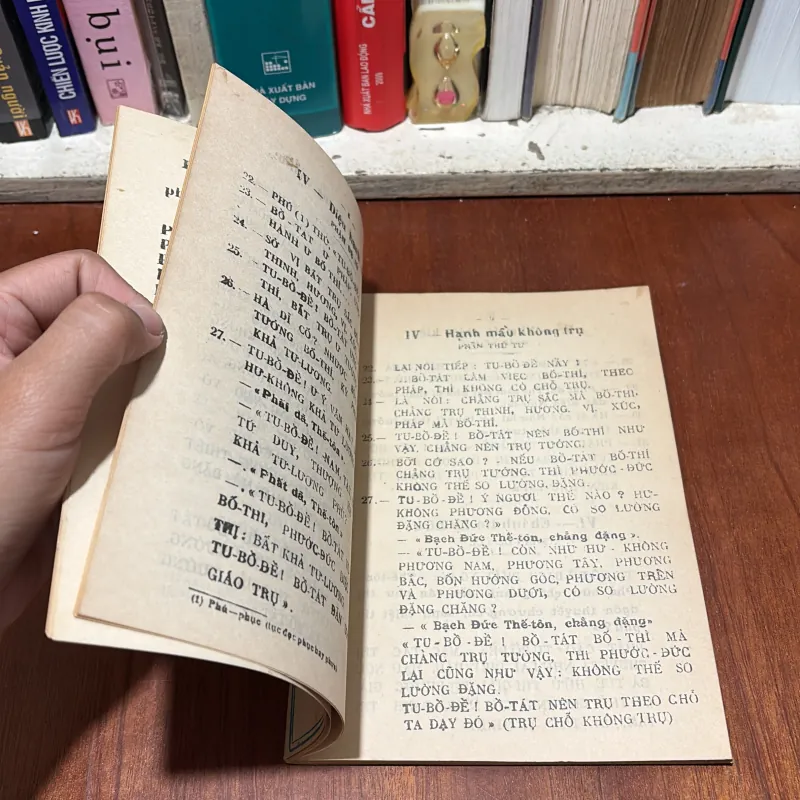 bụi
CHIẾN LƯỢC KINH
NHÀ XUẤT BẢN
NHÀ XUẤT BẢN LAO ĐỘNG
2005
IV — Diệu
22.— PHÚ (1) THỨ
23.— BỒ-TÁT Ư
HÀNH Ư BỐ
24.— SỞ VỊ BẤT TRỤ
THINH, HƯƠNG,
25.— TU-BỒ-ĐỀ!
THÍ, BẤT TRỤ
26.— HÀ DĨ CỐ? NHƯỢC
TƯỚNG BỐ-THÍ, KỲ
KHẢ TƯ-LƯƠNG.
27.— TU-BỒ-ĐỀ! Ư Ý VÂN
HƯ-KHÔNG KHẢ TƯ
— « Phất dã, Thế-tôn.
— « TU-BỒ-ĐỀ! NAM,
TỨ DUY, THƯỢNG
KHẢ TƯ-LƯƠNG PHỦ?
— « Phất dã, Thế-tôn.
— « TU-BỒ-ĐỀ! BỒ-TÁT
BỐ-THI, PHƯỚC-ĐỨC
THỊ: BẤT KHẢ TƯ-LƯƠNG
TU-BỒ-ĐỀ! BỒ-TÁT ĐẢN
GIÁO TRỤ ».
(1) Phú—phục (tục đọc phúc hay phú)
IV Hạnh mầu không trụ
PHẦN THỨ TƯ
22.— LẠI NÓI TIẾP: TU-BỒ-ĐỀ NÀY!
BỒ-TÁT LÀM VIỆC BỐ-THÍ, THEO
PHÁP, THÌ KHÔNG CÓ CHỖ TRỤ.
LÀ NÓI: CHẲNG TRỤ SẮC MÀ BỐ-THÍ,
CHẲNG TRỤ THINH, HƯƠNG, VỊ, XÚC,
PHÁP MÀ BỐ-THÍ.
25.— TU-BỒ-ĐỀ! BỒ-TÁT NÊN BỐ-THÍ NHƯ
VẬY, CHẲNG TRỤ TƯỚNG.
26.— BỞI CỚ SAO? NẾU BỒ-TÁT BỐ-THÍ
CHẲNG TRỤ TƯỚNG, THÌ PHƯỚC-ĐỨC
KHÔNG THỂ SO LƯỜNG, ĐẶNG.
27.— TU-BỒ-ĐỀ! Ý NGƯƠI THẾ NÀO? HƯ-
KHÔNG PHƯƠNG ĐÔNG, CÓ SO LƯỜNG
ĐẶNG CHĂNG? »
— « Bạch Đức Thế-tôn, chẳng đặng ».
— « TU-BỒ-ĐỀ! CÒN NHƯ HƯ-KHÔNG
PHƯƠNG NAM, PHƯƠNG TÂY, PHƯƠNG
BẮC, BỐN HƯỚNG GÓC, PHƯƠNG TRÊN
VÀ PHƯƠNG DƯỚI, CÓ SO LƯỜNG
ĐẶNG CHĂNG?
— « Bạch Đức Thế-tôn, chẳng đặng»
« TU-BỒ-ĐỀ! BỒ-TÁT BỐ-THÍ MÀ
CHẲNG TRỤ TƯỚNG, THÌ PHƯỚC-ĐỨC
LẠI CŨNG NHƯ VẬY: KHÔNG THỂ SO
LƯỜNG ĐẶNG.
TU-BỒ-ĐỀ! BỒ-TÁT NÊN TRỤ THEO CHỖ
TA DẠY ĐÓ » (TRỤ CHỖ KHÔNG TRỤ)